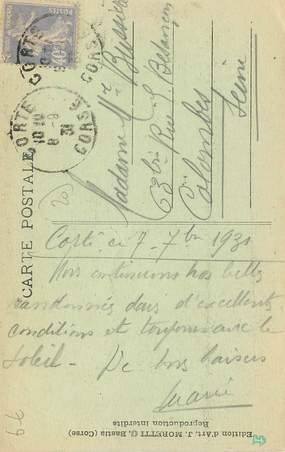 CORTE
CORSE
CORTE
10 10
8 - 9
31
CORSE
CARTE POSTALE
Madame Vve Bussière
63 bis Rue G. Besançon
Colombes
Seine
Corté ce 7 - 7bre 1931
Nous continuons nos belles
randonnés dans d'excellents
conditions et toujours avec le
Soleil - De bons baisers
Marie
Edition d'Art, J. MORETTI, Bastia (Corse)
Reproduction interdite